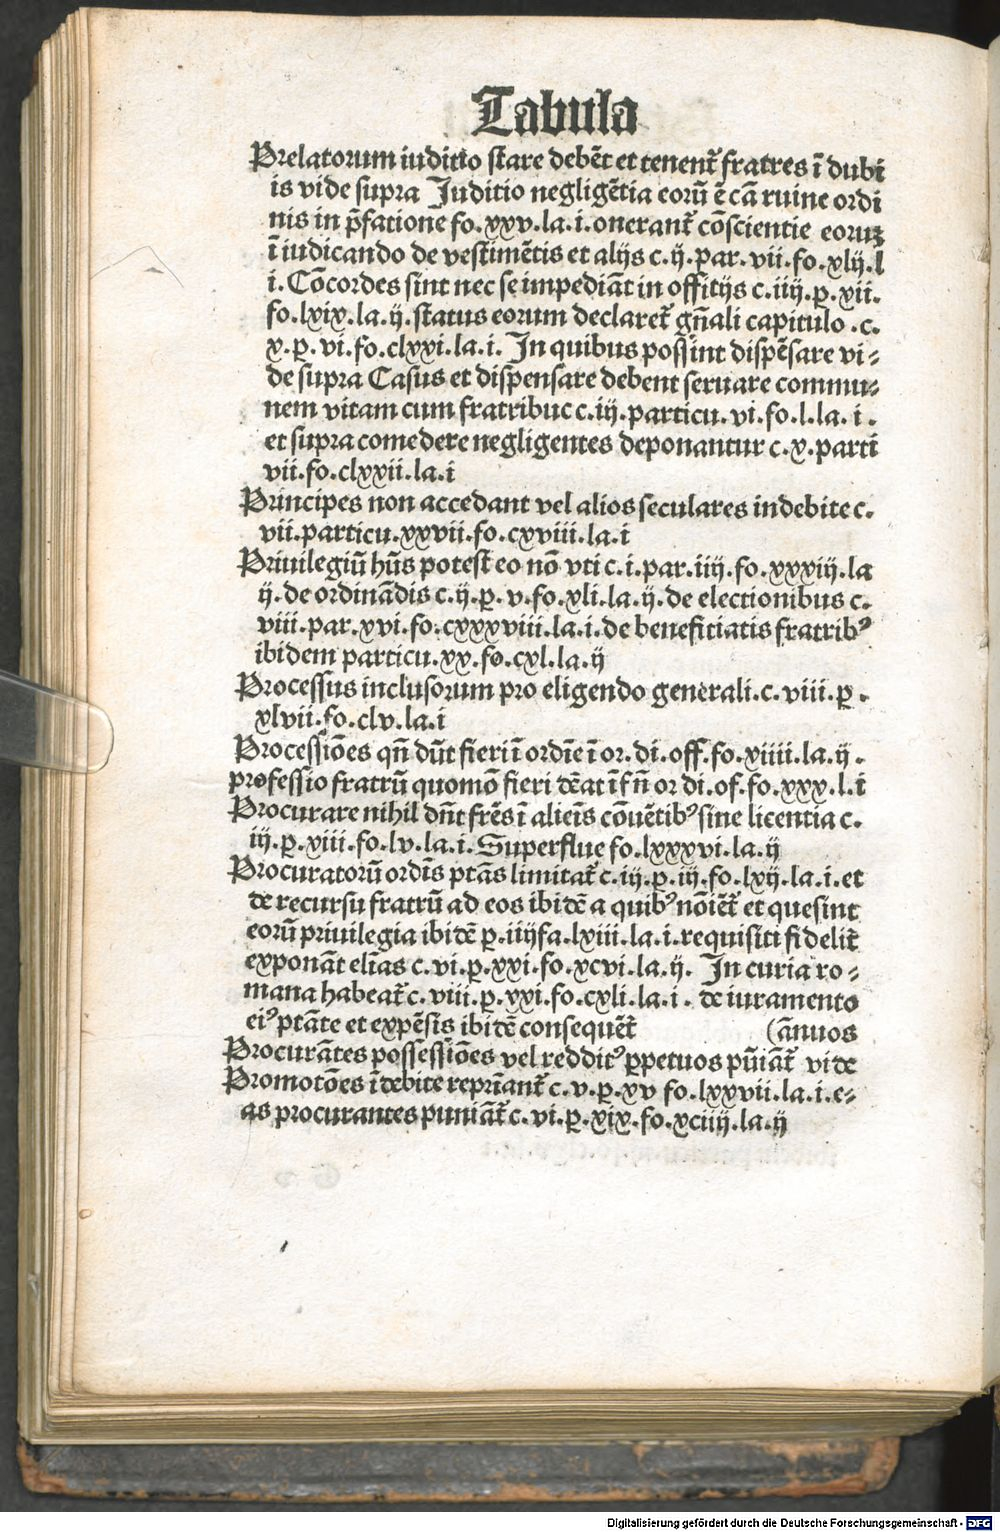 Tabula
Prelatorum iuditio stare debēt et tenent᷑ fratres ī dubi
is vide supra Juditio negligētia eorū ē cā ruine ordi
nis in p̄fatione fo.xxv.la.i.onerant᷑ cōscientie eoruꝫ
ī iudicando de vestimētis et alijs c.ij.par.vii.fo.xlij.l
i. Cōcordes sint nec se impediāt in offitijs c.iij.ꝑ.xii.
fo.lxix.la.ij.status eorum declaret᷑ gn̄ali capitulo .c.
x.ꝑ.vi.fo.clxxi.la.i. In quibus possint dispēsare vi-
de supra Casus et dispensare debent seruare commu-
nem vitam cum fratribuc c.iij.particu.vi.fo.l.la.i.
et supra comedere negligentes deponantur c.x.parti
vii.fo.clxxii.la.i
Principes non accedant vel alios seculares indebite c.
vii.particu.xxvii.fo.cxviii.la.i
Priuilegiū hn̄s potest eo nō vti c.i.par.iij.fo.xxxiij.la
ij.de ordinādis c.ij.ꝑ.v.fo.xli.la.ij.de electionibus c.
viii.par.xvi.fo.cxxxviii.la.i.de benefitiatis fratribꝰ
ibidem particu.xx.fo.cxl.la.ij
Processus inclusorum pro eligendo generali.c.viii.ꝑ.
xlvii.fo.clv.la.i
Processiōes qn̄ dn̄t fieri ī ordīe ī or.di.off.fo.xiiii.la.ij.
professio fratrū quomō fieri dēat īfn̄ or di.of.fo.xxx.l.i
Procurare nihil dn̄t frēs ī alieīs cōuētibꝰ sine licentia c.
iij.ꝑ.xiii.fo.lv.la.i.Superflue fo.lxxxvi.la.ij
Procuratorū ordīs ptās limitat᷑ c.iij.ꝑ.iij.fo.lxij.la.i.et
de recursu fratrū ad eos ibidē a quibꝰ nōiēt᷑ et que sint
eorū priuilegia ibidē ꝑ.iiijfa.lxiii.la.i.requisiti fidelit᷑
exponāt elīas c.vi.ꝑ.xxi.fo.xcvi.la.ij. In curia ro-
mana habeat᷑ c.viii.ꝑ.xxi.fo.cxli.la.i. de iuramento
eiꝰ ptāte et expēsis ibidē consequēt᷑ (ānuos
Procurātes possessiōes vel redditꝰ ꝑpetuos pūiāt᷑ vide
Promotōes īdebite reprīant᷑ c.v.ꝑ.xv fo.lxxvii.la.i.e-
as procurantes puniāt᷑ c.vi.ꝑ.xix.fo.xciiij.la.ij
Digitalisierung gefördert durch die Deutsche Forschungsgemeinschaft - DFG